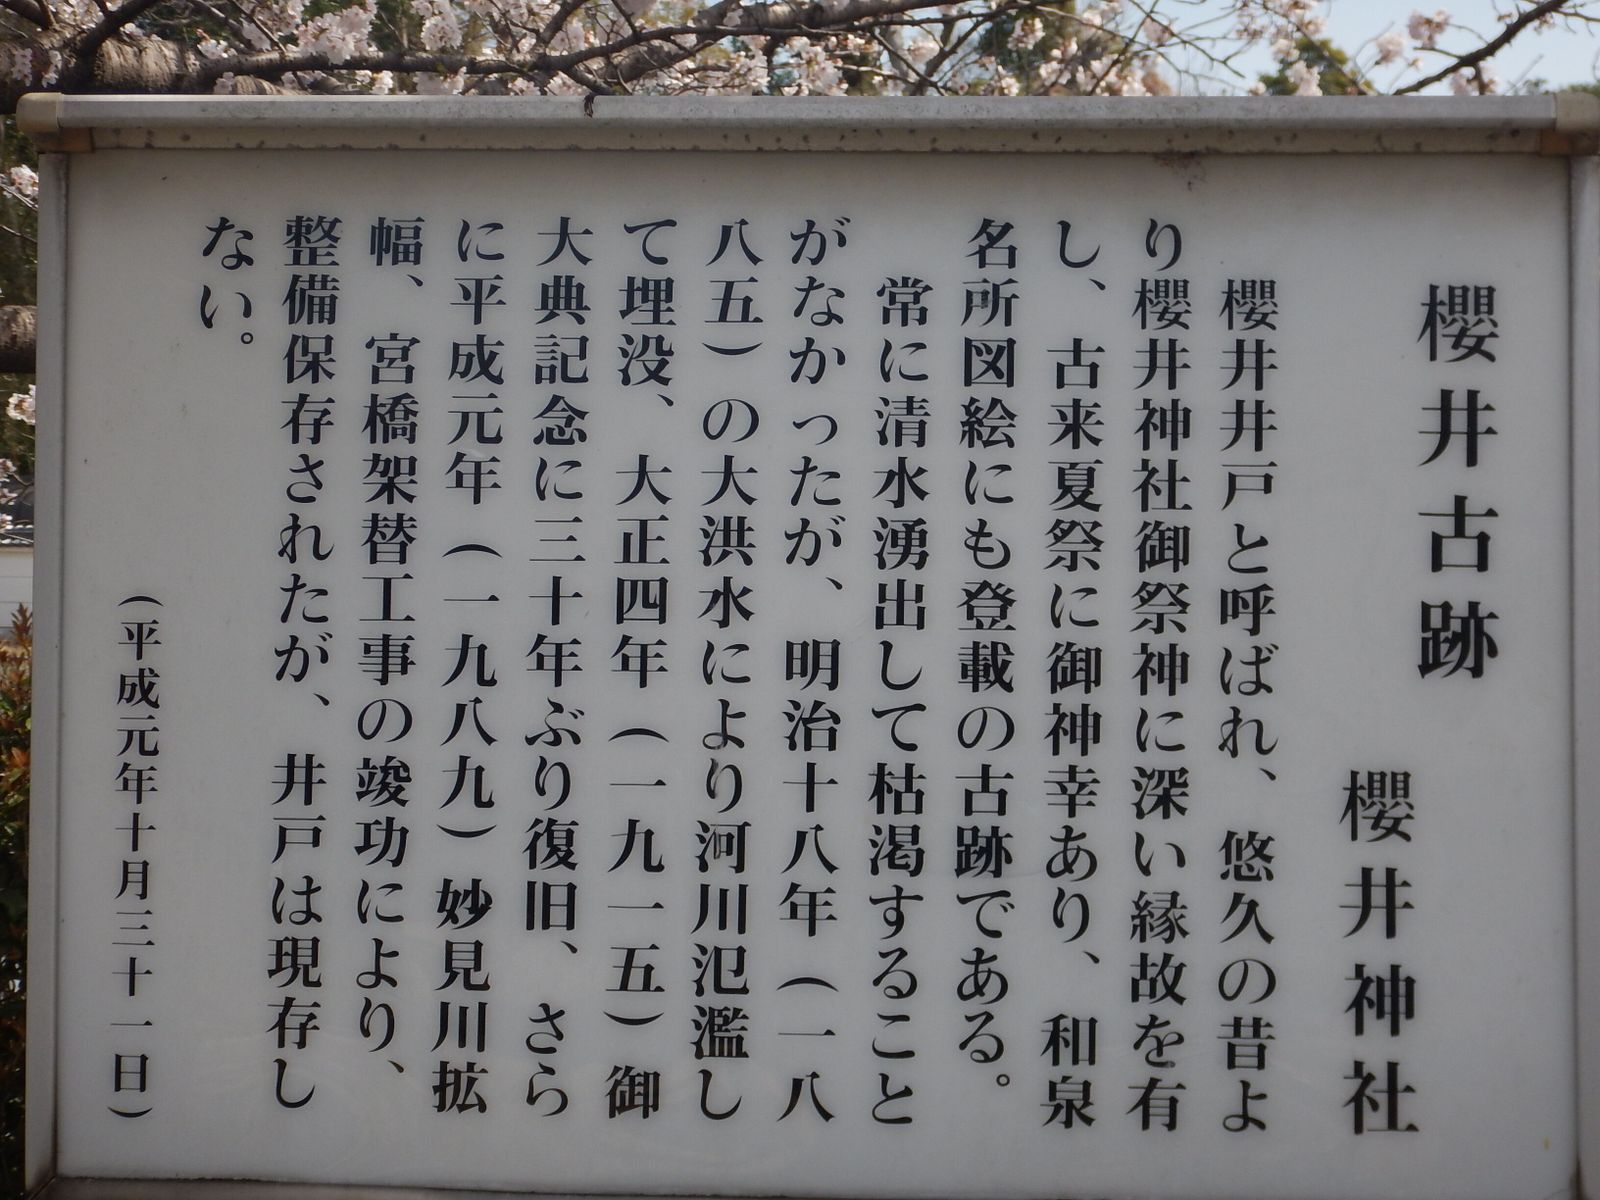 櫻井古跡
櫻井神社
櫻井井戸と呼ばれ、悠久の昔よ
り櫻井神社御祭神に深い縁故を有
し、古来夏祭に御神幸あり、和泉
名所図絵にも登載の古跡である。
常に清水湧出して枯渇すること
がなかったが、明治十八年(一八
八五)の大洪水により河川氾濫し
て埋没、大正四年(一九一五)御
大典記念に三十年ぶり復旧、さら
に平成元年(一九八九)妙見川拡
幅、宮橋架替工事の竣功により、
整備保存されたが、井戸は現存し
ない。
(平成元年十月三十一日)